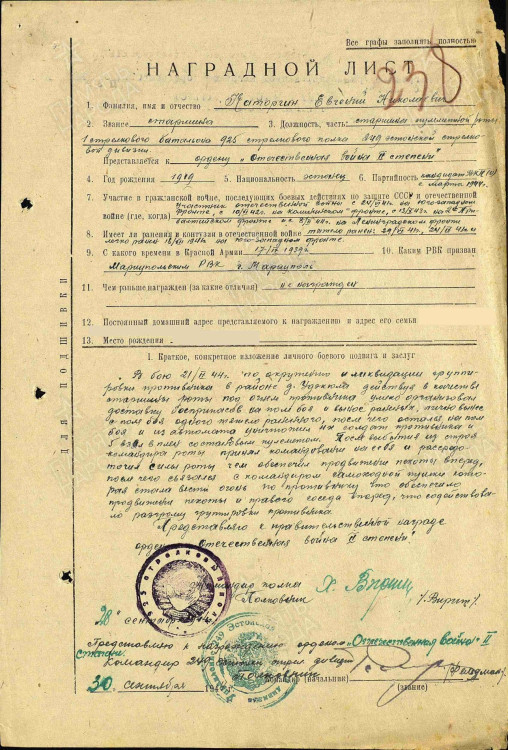 Все графы заполнять полностью
238
НАГРАДНОЙ ЛИСТ
1. Фамилия, имя и отчество Каторгин Евгений Николаевич
2. Звание старшина 3. Должность, часть: старшина пулеметной роты
1 стрелкового батальона 925 стрелкового полка 249 эстонской стрелко-
вой дивизии.
Представляется к ордену "Отечественная война II степени"
4. Год рождения 1919 5. Национальность эстонец 6. Партийность кандидат
с марта 1944г.
7. Участие в гражданской войне, последующих боевых действиях по защите СССР и отечественной
войне (где, когда) Участник отечественной войны с на юго-западном
фронте, с на калининском фронте, с
фронте и с на Ленинградском фронте
8. Имеет ли ранения и контузии в отечественной войне тяжело ранен:
легко ранен на юго-западном фронте.
9. С какого времени в Красной Армии 1939г. 10. Каким РВК призван
Мариупольским РВК г. Мариуполь
11. Чем ранее награжден (за какие отличия) не награжден
12. Постоянный домашний адрес представляемого к награждению и адрес его семьи
13. Место рождения
ДЛЯ ПОДШИВКИ
I. Краткое, конкретное изложение личного боевого подвига и заслуг
В бою 21/IX 44г. по окружению и ликвидации группи-
ровки противника в районе д. действуя в качестве
старшины роты под огнем противника умело организовал
доставку боеприпасов на поле боя и вынос раненых, лично вынес
с поля боя одного тяжело раненого, после чего остался на поле
боя и из автомата уничтожил солдат противника и
5 взял в плен со станковым пулеметом. После выбытия из строя
командира роты принял командование на себя и рассредо-
точил силы роты чем обеспечил продвижение пехоты вперед,
после чего связался с командиром самоходной пушки кото-
рая стала вести огонь по противнику что обеспечило
продвижение пехоты и правого соседа вперед, что содействова-
ло разгрому группировки противника.
Представляю к правительственной награде
орден "Отечественная война II степени"
Командир полка
Полковник /Вырк/.
28 сентября
925 СТРЕЛКОВЫЙ ПОЛК
Представляю к награждению орденом „Отечественная война" II
степени.
Командир 249 эстонской стрелк дивизии
Полковник /Фельдман/.
Командир (начальник)
(звание)
30 сентября 194